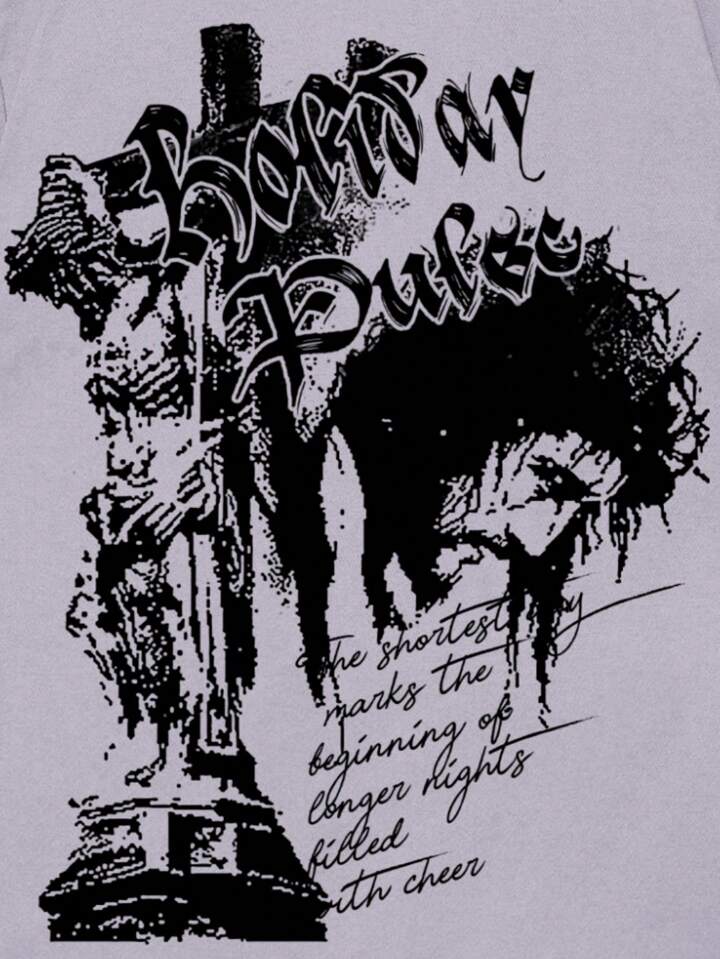 Holiday
Pulse
The shortest day
marks the
beginning of
longer nights
filled
with cheer